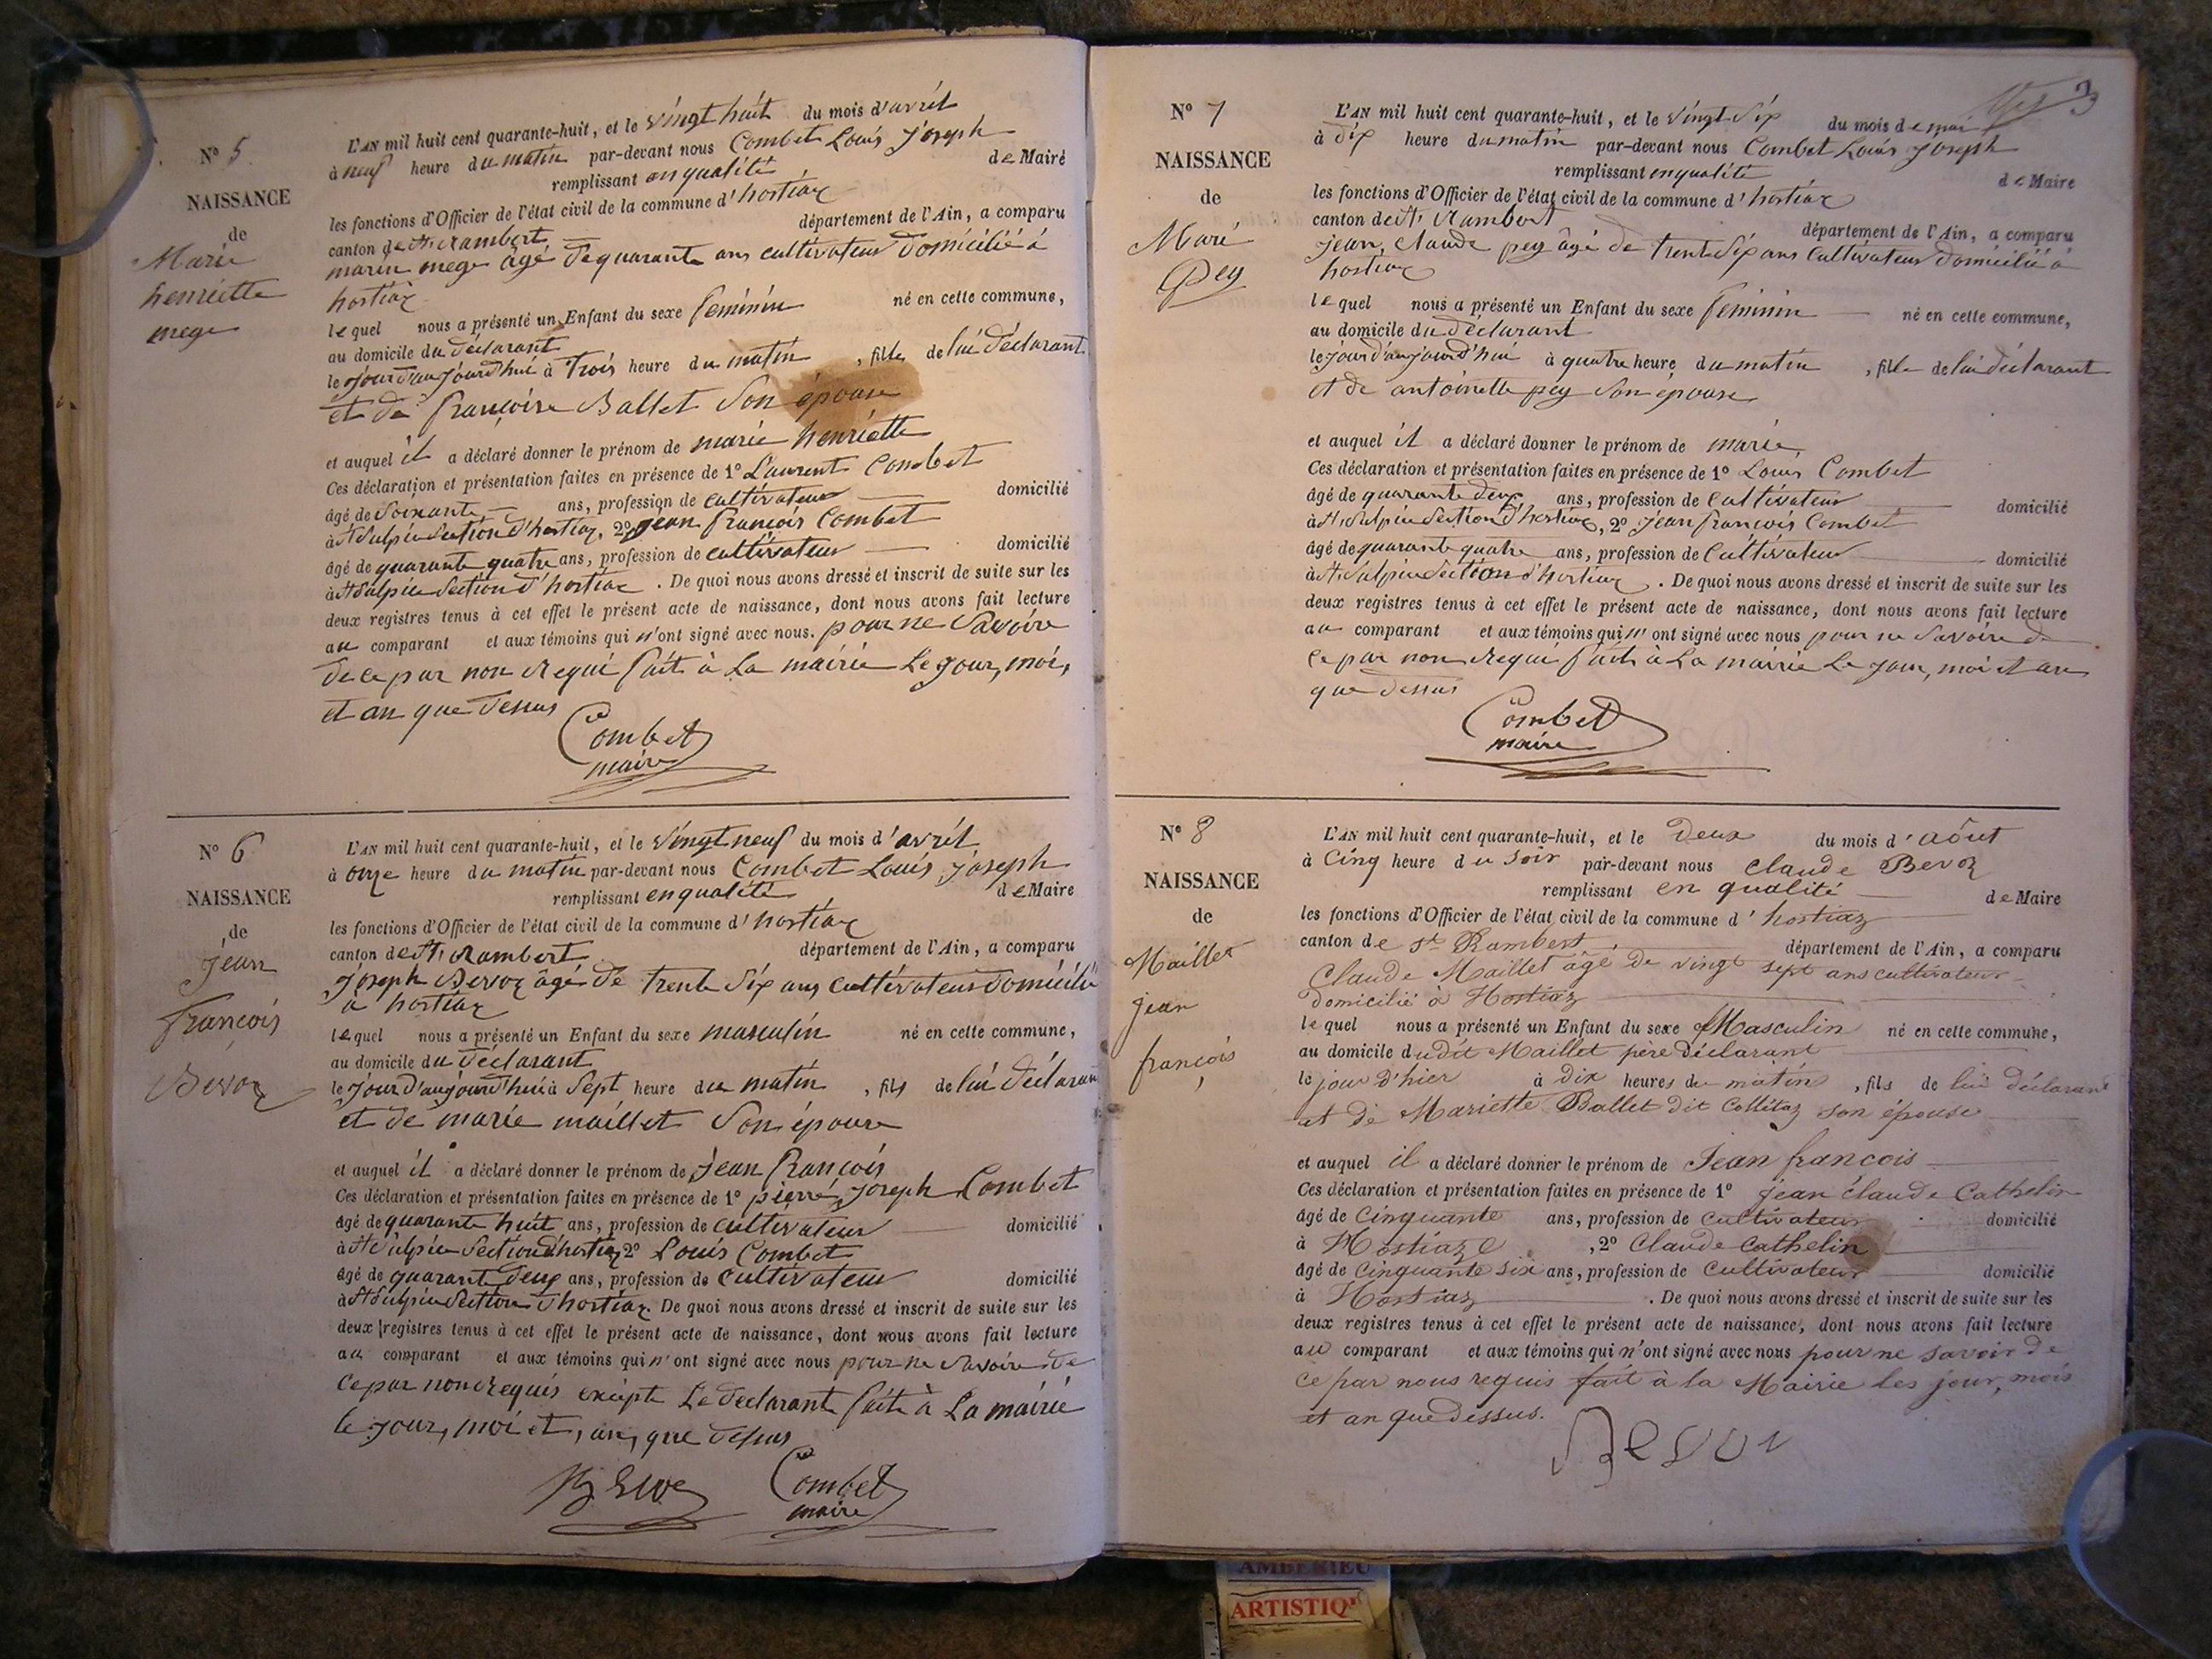 N° 5
NAISSANCE
de
Marie
henriette
mege
L'AN mil huit cent quarante-huit, et le vingt huit du mois d'avril
à neuf heure du matin par-devant nous Combet Louis Joseph
remplissant en qualité de Maire
les fonctions d'Officier de l'état civil de la commune d'hostiaz
canton de St Rambert département de l'Ain, a comparu
marin mege âgé de quarante ans cultivateur domicilié à
hostiaz
lequel nous a présenté un Enfant du sexe feminin né en cette commune,
au domicile du déclarant
le jour d'aujourd'hui à trois heure du matin, fille de lui déclarant
et de françoise Ballet son épouse
et auquel il a déclaré donner le prénom de marie henriette
Ces déclaration et présentation faites en présence de 1° Laurent Combet
âgé de soixante ans, profession de cultivateur domicilié
à St Sulpice Section d'hostiaz, 2° jean françois Combet
âgé de quarante quatre ans, profession de cultivateur domicilié
à St Sulpice Section d'hostiaz. De quoi nous avons dressé et inscrit de suite sur les
deux registres tenus à cet effet le présent acte de naissance, dont nous avons fait lecture
au comparant et aux témoins qui n'ont signé avec nous. pour ne savoire
de ce par non requi fait à La mairie Le jour, moi,
et an que dessus
Combet
maire
N° 6
NAISSANCE
de
jean
françois
Bevoz
L'AN mil huit cent quarante-huit, et le vingt neuf du mois d'avril
à onze heure du matin par-devant nous Combet Louis Joseph
remplissant en qualité de Maire
les fonctions d'Officier de l'état civil de la commune d'hostiaz
canton de St Rambert département de l'Ain, a comparu
Joseph Bevoz âgé de trente six ans cultivateur domicilié
à hostiaz
lequel nous a présenté un Enfant du sexe masculin né en cette commune,
au domicile du déclarant
le jour d'aujourd'hui à sept heure du matin, fils de lui déclarant
et de marie maillet son épouse
et auquel il a déclaré donner le prénom de jean françois
Ces déclaration et présentation faites en présence de 1° pierre Joseph Combet
âgé de quarante huit ans, profession de cultivateur domicilié
à St Sulpice Section d'hostiaz 2° Louis Combet
âgé de quarante deux ans, profession de cultivateur domicilié
à St Sulpice Section d'hostiaz. De quoi nous avons dressé et inscrit de suite sur les
deux registres tenus à cet effet le présent acte de naissance, dont nous avons fait lecture
au comparant et aux témoins qui n'ont signé avec nous pour ne savoire de
ce par non requis exèpte Le declarant fait à La mairie
le jour, moi et, an, que dessus
Combet
maire
3
N° 7
NAISSANCE
de
Marie
Pey
L'AN mil huit cent quarante-huit, et le vingt six du mois de mai
à dix heure du matin par-devant nous Combet Louis Joseph
remplissant en qualité de Maire
les fonctions d'Officier de l'état civil de la commune d'hostiaz
canton de St Rambert département de l'Ain, a comparu
jean, claude pey âgé de trente six ans cultivateur domicilié à
hostiaz
lequel nous a présenté un Enfant du sexe feminin né en cette commune,
au domicile du déclarant
le jour d'aujourd'hui à quatre heure du matin, fille de lui déclarant
et de antoinette pey son épouse
et auquel il a déclaré donner le prénom de marie
Ces déclaration et présentation faites en présence de 1° Louis Combet
âgé de quarante deux ans, profession de cultivateur domicilié
à St Sulpice Section d'hostiaz, 2° jean françois Combet
âgé de quarante quatre ans, profession de cultivateur domicilié
à St Sulpice Section d'hostiaz. De quoi nous avons dressé et inscrit de suite sur les
deux registres tenus à cet effet le présent acte de naissance, dont nous avons fait lecture
au comparant et aux témoins qui n'ont signé avec nous pour ne savoire de
ce par non requi fait à La mairie Le jour, moi et an
que dessus
Combet
maire
N° 8
NAISSANCE
de
Maillet
jean
françois
L'AN mil huit cent quarante-huit, et le deux du mois d'aôut
à cinq heure du soir par-devant nous claude Bevoz
remplissant en qualité de Maire
les fonctions d'Officier de l'état civil de la commune d'hostiaz
canton de st Rambert département de l'Ain, a comparu
Claude Maillet âgé de vingt sept ans cultivateur
domicilié à Hostiaz
lequel nous a présenté un Enfant du sexe Masculin né en cette commune,
au domicile dudit Maillet père déclarant
le jour d'hier à dix heures du matin, fils de lui déclarant
et de Mariette Ballet dit Collitaz son épouse
et auquel il a déclaré donner le prénom de Jean françois
Ces déclaration et présentation faites en présence de 1° jean claude Cathelin
âgé de cinquante ans, profession de cultivateur domicilié
à Hostiaz, 2° Claude Cathelin
âgé de cinquante six ans, profession de cultivateur domicilié
à Hostiaz. De quoi nous avons dressé et inscrit de suite sur les
deux registres tenus à cet effet le présent acte de naissance, dont nous avons fait lecture
au comparant et aux témoins qui n'ont signé avec nous pour ne savoir de
ce par nous requis fait à la Mairie les jour, mois
et an que dessus.
AMBERIEU
ARTISTIQ